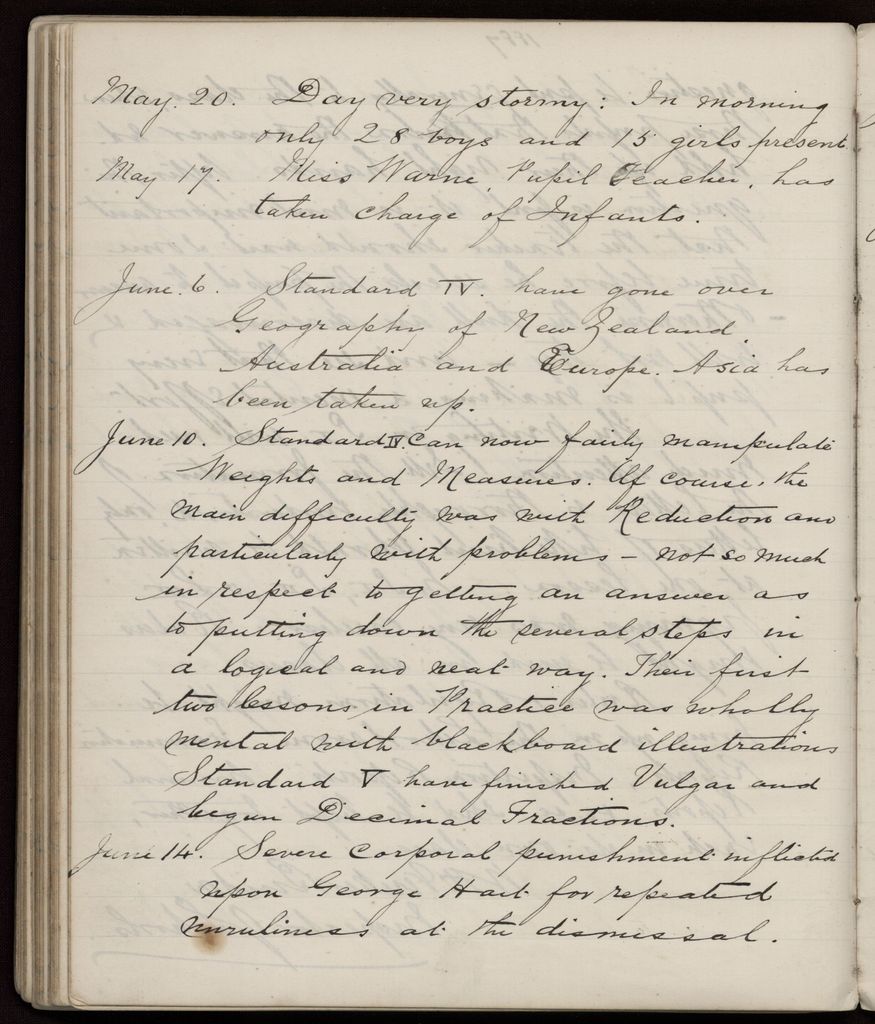 1889
May. 20. Day very stormy: In morning
only 28 boys and 15 girls present
May 17. Miss Warne, Pupil Teacher, has
taken charge of Infants.
June. 6. Standard IV. have gone over
Geography of New Zealand
Australia and Europe. Asia has
been taken up.
June 10. Standard IV. can now fairly manipulate
Weights and Measures. Of course, the
main difficulty was with Reduction and
particularly with problems – not so much
in respect to getting an answer as
to putting down the several steps in
a logical and neat way. Their first
two lessons in Practice was wholly
mental with blackboard illustrations
Standard V have finished Vulgar and
begun Decimal Fractions.
June 14. Severe corporal punishment inflicted
upon George Hart for repeated
unruliness at the dismissal.